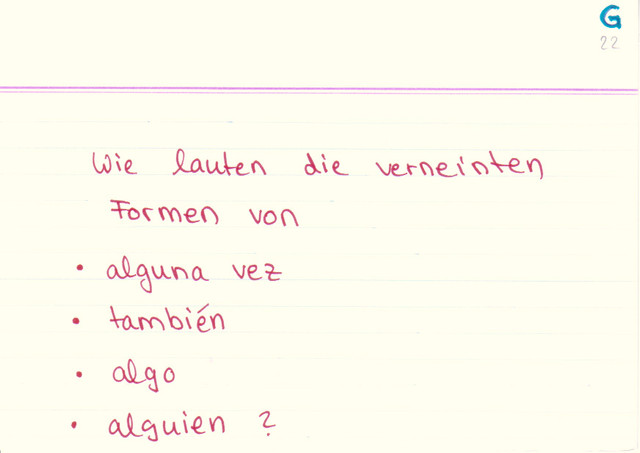 G
22
Wie lauten die verneinten
Formen von
• alguna vez
• también
• algo
• alguien ?